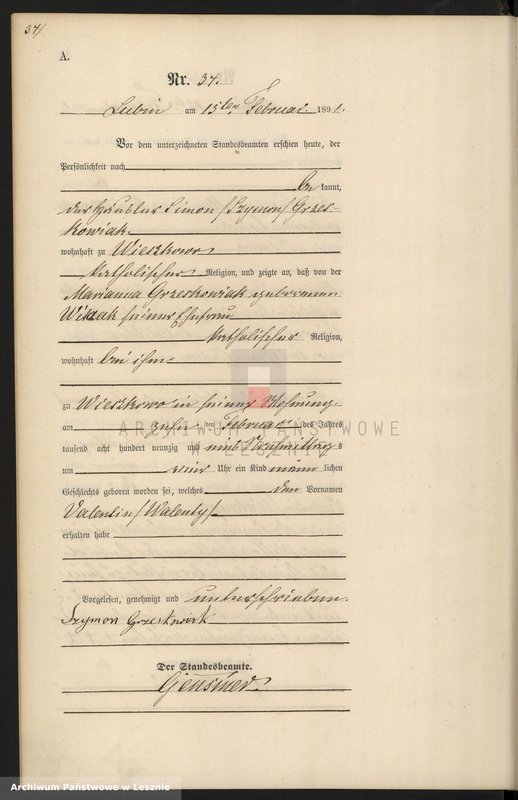 34/
A.
Nr. 34.
Lubin am 15ten Februar 1891.
Vor dem unterzeichneten Standesbeamten erschien heute, der
Persönlichkeit nach
be kannt,
der Häusler Simon /Szymon/ Grzes-
kowiak
wohnhaft zu Wieszkowo
katholischer Religion, und zeigte an, daß von der
Marianna Grzeskowiak geborenen
seiner Ehefrau
katholischer Religion,
wohnhaft bei ihm
zu Wieszkowo in seiner Wohnung
am zehn ten Februar des Jahres
tausend acht hundert neunzig und eins Vormittags
um Uhr ein Kind männ lichen
Geschlechts geboren worden sei, welches den Vornamen
Valentin /Walenty/
erhalten habe
Vorgelesen, genehmigt und unterschrieben.
Szymon Grzeskowiak
Der Standesbeamte.
ARCHIWUM PAŃSTWOWE
LESZNIE
Archiwum Państwowe w Lesznie